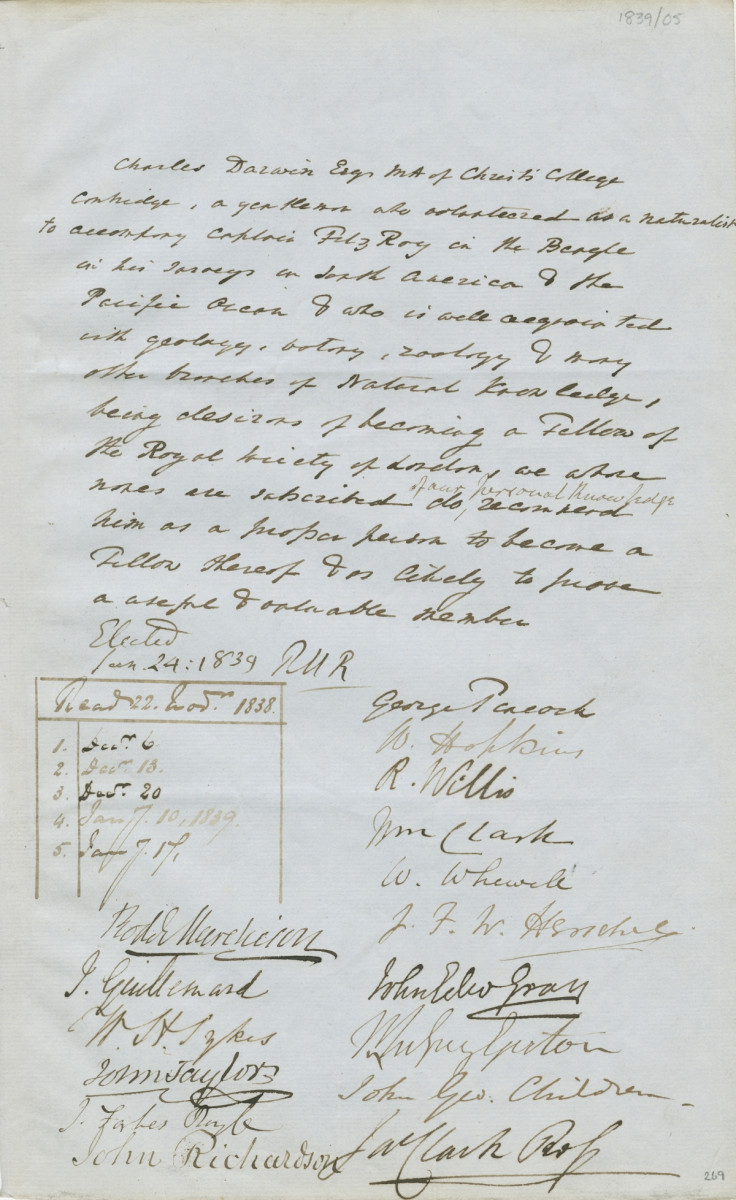 1839/05
Charles Darwin Esqr MA of Christ's College
Cambridge, a gentleman who volunteered as a naturalist
to accompany Captain FitzRoy in the Beagle
in his surveys in South America & the
Pacific Ocean & who is well acquainted
with geology, botany, zoology & many
other branches of Natural Knowledge,
being desirous of becoming a Fellow of
the Royal Society of London, we whose
names are subscribed do, of our personal knowledge recommend
him as a proper person to become a
Fellow thereof & as likely to prove
a useful & valuable member
Elected
Jan. 24: 1839 PMR
Read 22. Novr. 1838.
1. Decr. 6
2. Decr. 13.
3. Decr. 20
4. Jany. 10, 1839.
5. Jany. 17,
George Peacock
W. Hopkins
R. Willis
Wm Clark
W. Whewell
J. F. W. Herschel.
John Edw Gray
Grey Egerton
John Geo. Children
Jas Clark Ross
Rodk Murchison
J. Guillemard
W H Sykes
John Taylor
J. Forbes Royle
John Richardson
269